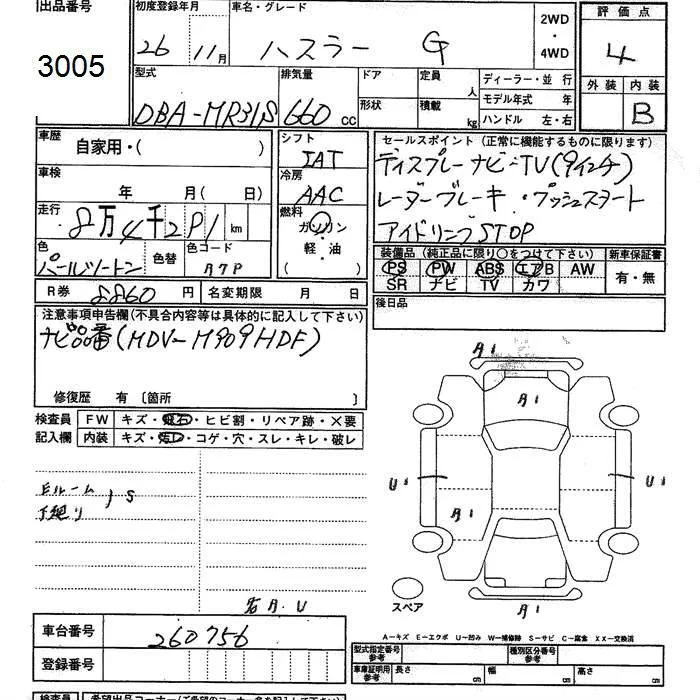 出品番号 初度登録年月 車名・グレード 2WD・4WD 評価点
3005 26 11月 ハスラー G 4
型式 排気量 ドア 定員 人 ディーラー・並 行 外装 内装
DBA-MR31S 660 cc 形状 積載 kg モデル年式 年 B
ハンドル 左・右
車歴 自家用・( ) シフト IAT セールスポイント (正常に機能するものに限ります)
車検 年 月( 日) 冷房 AAC ディスプレーナビ・TV(9インチ)
走行 8万4千2 1 km 燃料 ガソリン 軽・油 レーダーブレーキ・プッシュスタート
アイドリングSTOP
色 パールツートン 色替 色コード A7P
装備品 (純正品に限り○をつけて下さい) 新車保証書
PS PW ABS エアB AW 有・無
SR ナビ TV カワ
R券 8860 円 名変期限 月 日 後日品
注意事項申告欄(不具合内容等は具体的に記入して下さい)
ナビ品番(MDV-M909HDF)
修復歴 有 〔箇所 〕
検査員 FW キズ・飛石・ヒビ割・リペア跡・×要
記入欄 内装 キズ・汚れ・コゲ・穴・スレ・キレ・破レ
A1
A1
U1 U1
A1
S
A1
スペア
若A.U
A-キズ E-エクボ U-凹み W-補修跡 S-サビ C-腐食 XX-交換済
車台番号 260756
型式指定番号 参考 種別区分番号 参考
登録番号 車庫証明用 参考 長さ cm 幅 cm 高さ cm
検査員 希望出品コーナー(ご希望のコーナー名を記入して下さい)